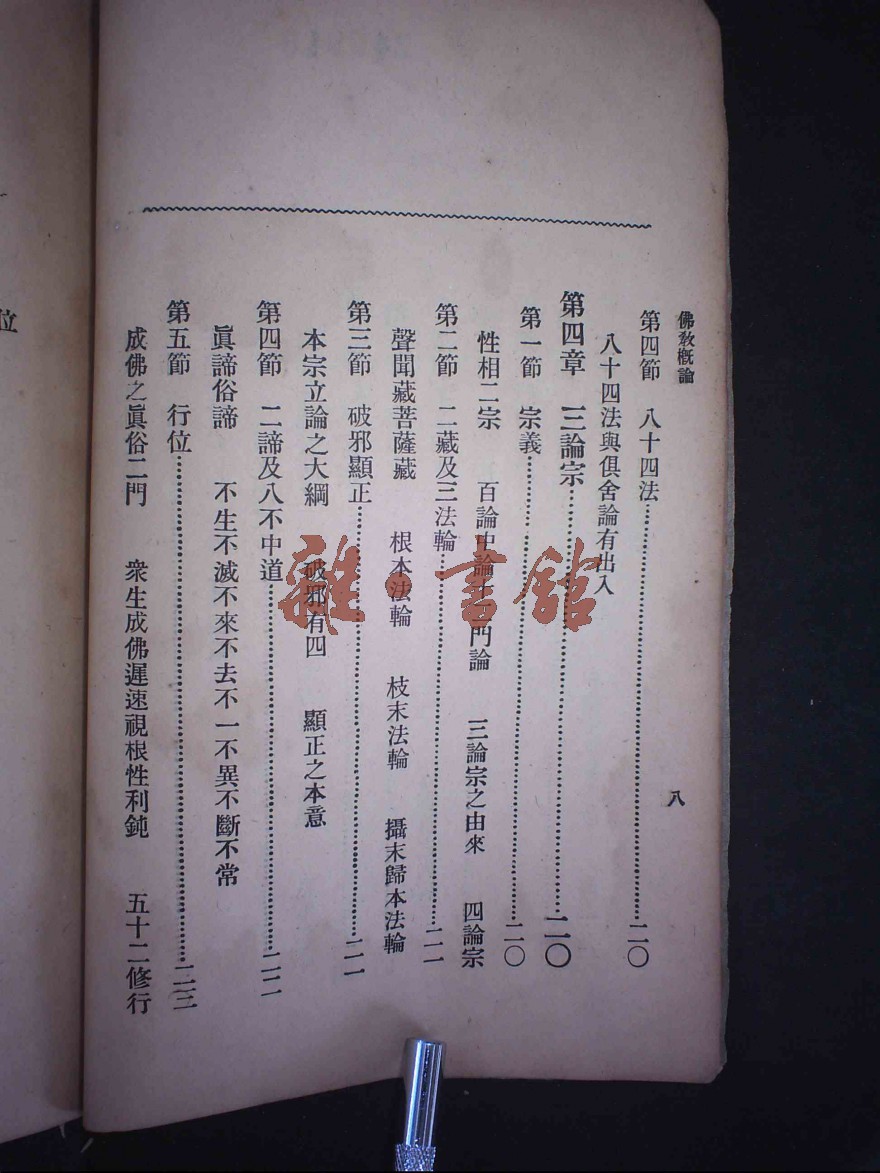 佛教概論
八
第四節 八十四法…………二〇
八十四法與俱舍論有出入
第四章 三論宗…………二〇
第一節 宗義…………二〇
性相二宗 百論中論十二門論 三論宗之由來 四論宗
第二節 二藏及三法輪…………二一
聲聞藏菩薩藏 根本法輪 枝末法輪 攝末歸本法輪
第三節 破邪顯正…………二一
本宗立論之大綱 破邪有四 顯正之本意
第四節 二諦及八不中道…………二二
眞諦俗諦 不生不滅不來不去不一不異不斷不常
第五節 行位…………二三
成佛之眞俗二門 衆生成佛遲速視根性利鈍 五十二修行
位
雜·書館